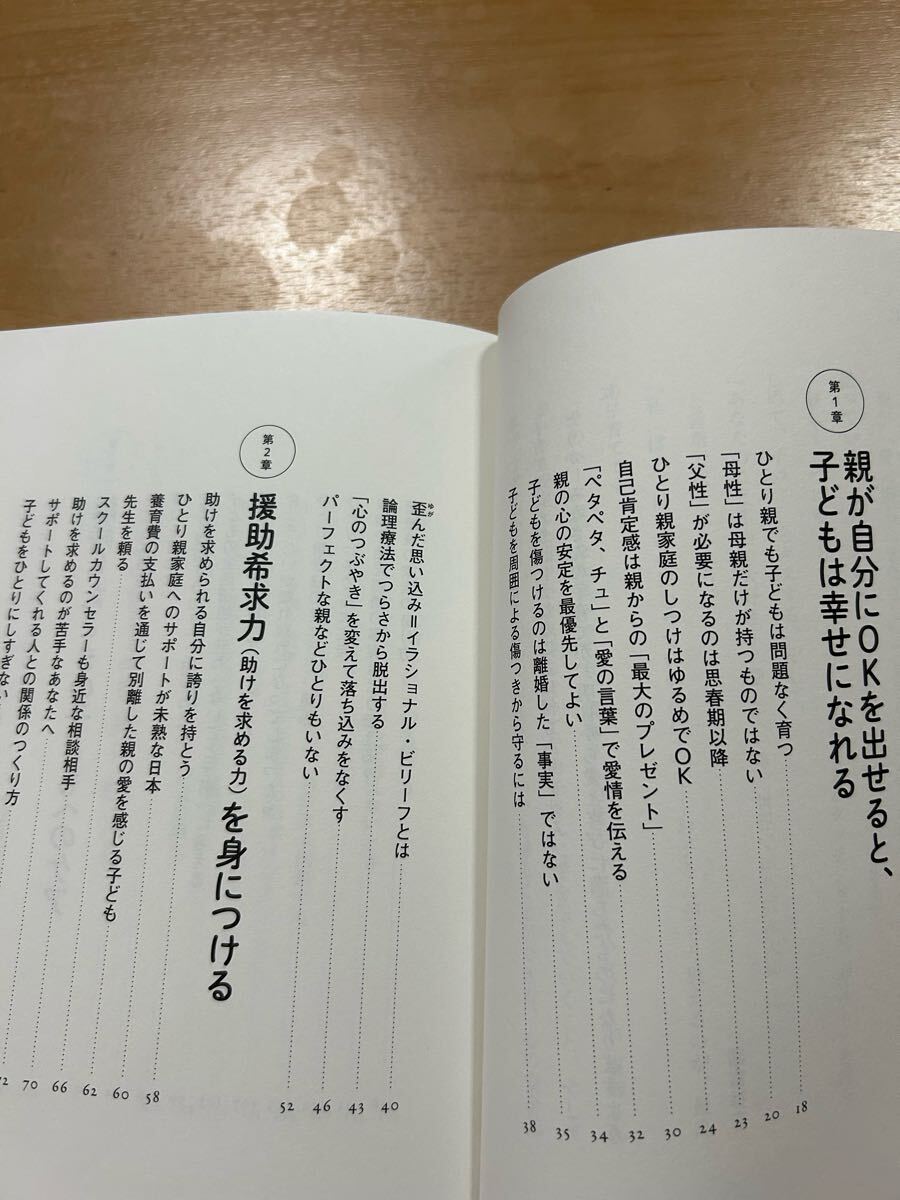 第1章
親が自分にOKを出せると、
子どもは幸せになれる
ひとり親でも子どもは問題なく育つ 18
「母性」は母親だけが持つものではない 20
「父性」が必要になるのは思春期以降 23
ひとり親家庭のしつけはゆるめでOK 24
自己肯定感は親からの「最大のプレゼント」 30
「ペタペタ、チュ」と「愛の言葉」で愛情を伝える 32
親の心の安定を最優先してよい 34
子どもを傷つけるのは離婚した「事実」ではない 35
子どもを周囲による傷つきから守るには 38
歪(ゆが)んだ思い込み=イラショナル・ビリーフとは 40
論理療法でつらさから脱出する 43
「心のつぶやき」を変えて落ち込みをなくす 46
パーフェクトな親などひとりもいない 52
第2章
援助希求力(助けを求める力)を身につける
助けを求められる自分に誇りを持とう 58
ひとり親家庭へのサポートが未熟な日本 60
養育費の支払いを通じて別離した親の愛を感じる子ども 62
先生を頼る 66
スクールカウンセラーも身近な相談相手 70
助けを求めるのが苦手なあなたへ
サポートしてくれる人との関係のつくり方
子どもをひとりにしすぎない